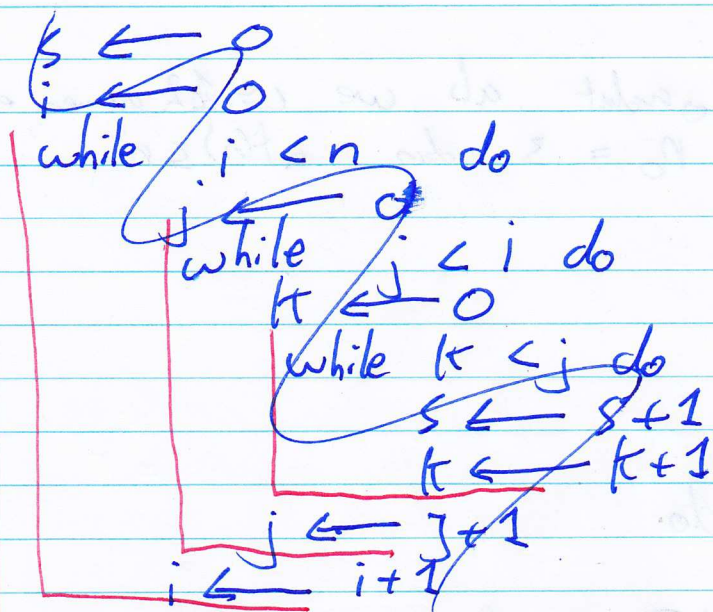 s ← 0
i ← 0
while i < n do
j ← 0
while j < i do
k ← 0
while k < j do
s ← s + 1
k ← k + 1
j ← j + 1
i ← i + 1